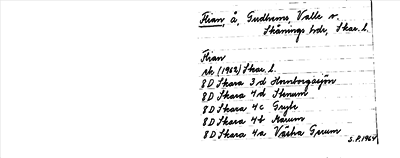 Flian, å, Gudhems, Valle o.
Skånings hdr, Skar. l.
Flian
rk (1962) Skar. l.
8D Skara 3d Hornborgasjön
8D Skara 4d Stenum
8D Skara 4c
8D Skara 4b Marum
8D Skara 4a Västra Gerum
S.P. 1964